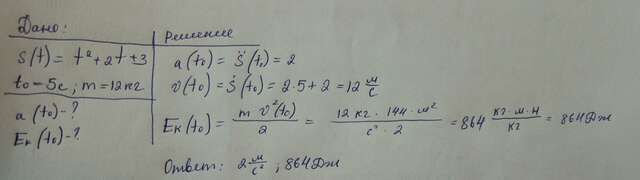 Дано:
S(t) = t² + 2t + 3
t₀ - 5c ; m = 12 кг
a(t₀) - ?
Eₖ(t₀) - ?
Решение
a(t₀) = S̈(t₀) = 2
v(t₀) = Ṡ(t₀) = 2·5 + 2 = 12 м/с
Eₖ(t₀) = m v²(t₀)/2 = 12 кг · 144 · м²/с² · 2 = 864 кг·м·н/кг = 864 Дж
Ответ: 2 м/с² ; 864 Дж